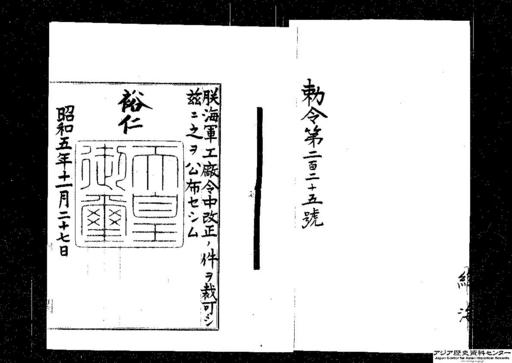 勅令第二百二十五號
朕海軍工廠令中改正ノ件ヲ裁可シ
茲ニ之ヲ公布セシム
裕仁
天皇御璽
昭和五年十一月二十七日
アジア歴史資料センター
Japan Center for Asian Historical Records